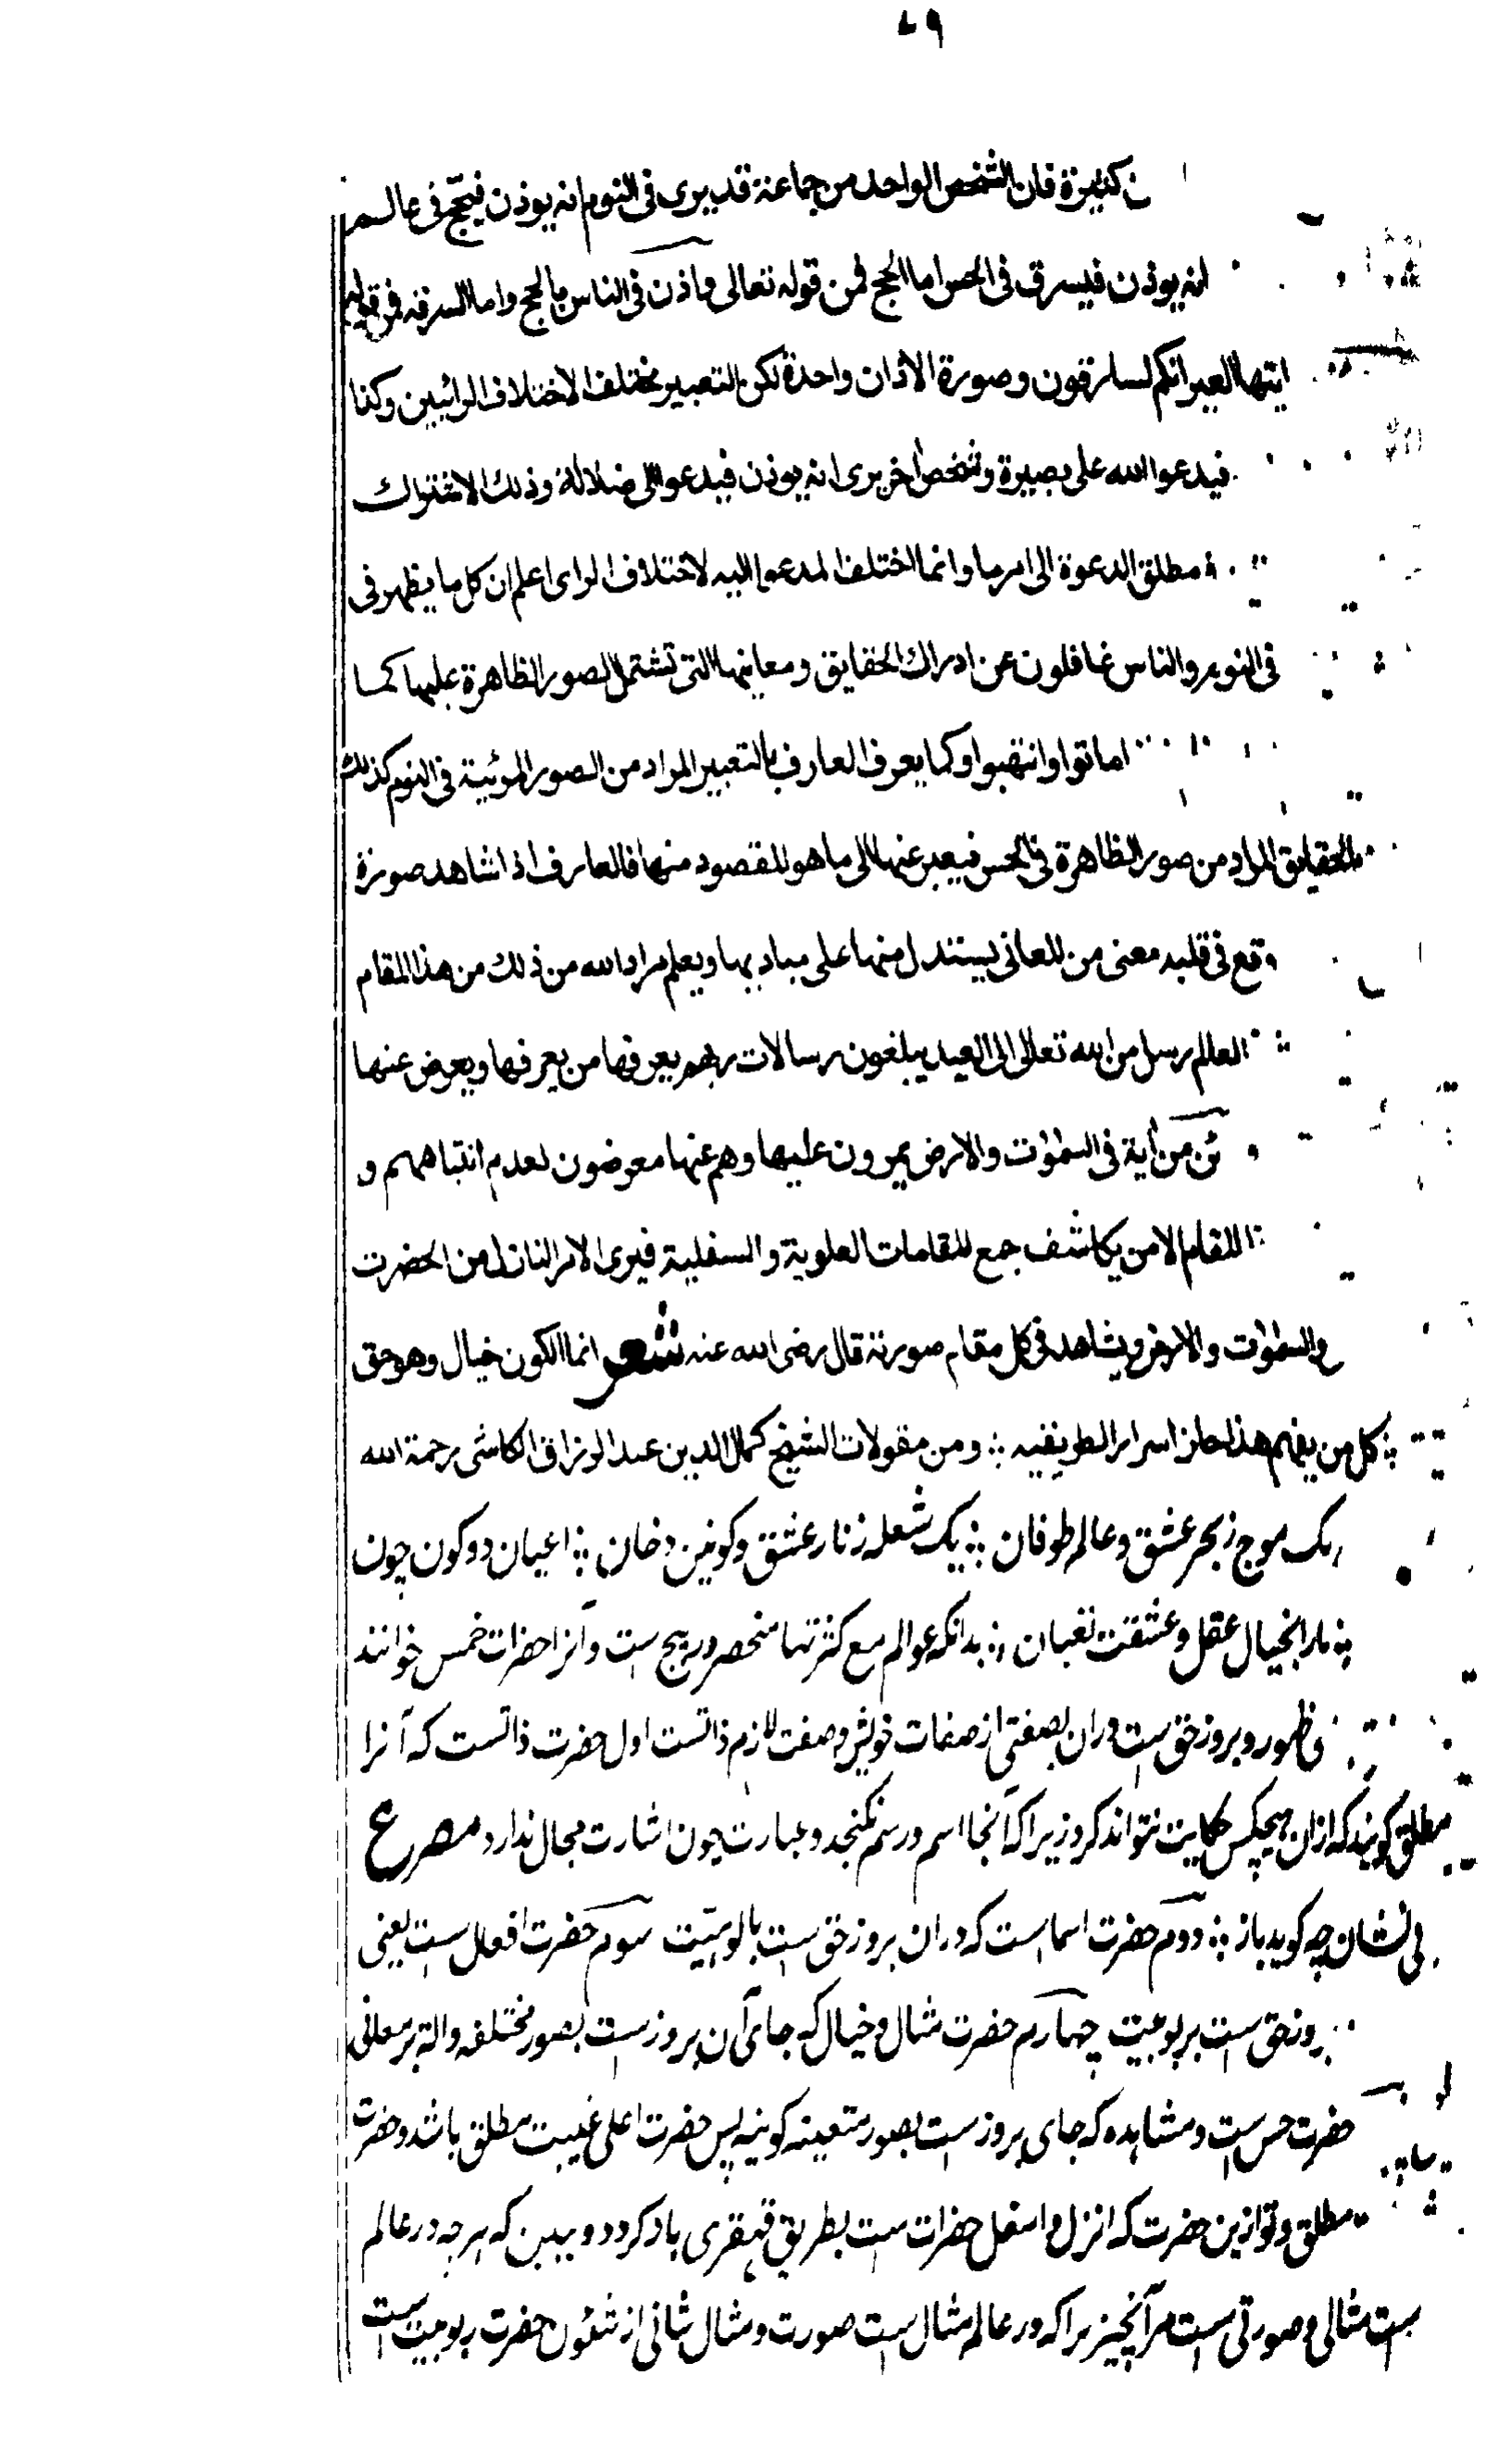 ٧٩
كثيرة فان الشخص الواحد من جماعة قد يرى فى النوم انه يوذن فيحجّ فى عالم
انه يوذن فيسرق فى الحس اما الحج فمن قوله تعالى واذن فى الناس بالحج واما السرقه فمن قوله
ايتها العير انكم لسارقون وصورة الاذان واحدة لكن التعبير مختلف لاختلاف الرائيين وكذا
فيدعوا الله على بصيرة وشخص اخر يرى انه يوذن فيدعوا الى ضلالة وذلك الاشتراك
مطلق الدعوة الى امر ما وانما اختلف المدعو اليه لاختلاف الراى اعلم ان كل ما يظهر فى
فى النوم والناس غافلون عن ادراك الحقايق ومعانيها التى تشتمل الصور الظاهرة عليها كما
اماتوا وانتبهوا وكما يعرف العارف بالتعبير المراد من الصور المرئية فى النوم كذلك
بالحقايق المراد من صور الظاهرة فى الحس فيعبر عنها الى ما هو المقصود منها فالعارف اذا شاهد صورة
وقع فى قلبه معنى من المعانى يستدل منها على مباديها ويعلم مراد الله من ذلك من هذا المقام
العالم رسل من الله تعالى الى العبد يبلغون رسالات ربهم يعرفها من يعرفها ويعرض عنها
ئن من آية فى السموٰت والارض يمرون عليها وهم عنها معرضون لعدم انتباههم و
المقام الا من يكاشف جمع المقامات العلوية والسفلية فيرى الامر النازل من الحضرت
والسموٰت والارض ويشاهد فى كل مقام صورته قال رضى الله عنه شعر انما الكون خيال وهو حق
كل من يفهم هذا حاز اسرار الطريقيه ؞ ومن مقولات الشيخ كمال الدين عبد الرزاق الكاشى رحمة الله
یک موج ز بحر عشق و عالم طوفان ؞ یک شعله ز نار عشق و کونین دخان ؞ اعیان دو کون چون
مار بخیال عقل و عشقت ثعبان ؞ بدانکه عوالم مع کثرتها منحصر در پنج ست و آنرا حضرات خمس خوانند
ظهور و بروز حق ست دران بصفتی از صفات خویش و صفت لازم ذاتست اول حضرت ذاتست که آنرا
مطلق گویند که ازان هیچکس حکایت نتواند کرد زیرا که آنجا اسم و رسم نگنجد و عبارت چون اشارت مجال ندارد مصرع
بی نشان چه گوید باز ؞ دوم حضرت اسما ست که دران بروز حق ست بالوهیت سوم حضرت افعال ست یعنی
بروز حق ست بربوبیت چهارم حضرت مثال و خیال که جای آن بروز ست بصور مختلفه والة بر معانی
حضرت حس ست و مشاهده که جای بروز ست بصور متعینه کونیه پس حضرت اعلی غیبت مطلق باشد و حضرت
مطلق و تو ازین حضرت که انزل و اسفل حضرات ست بطریق قهقری باز گرد و ببین که هر چه در عالم
ست مثالی و صورتی ست مر آنچیز را که در عالم مثال ست صورت و مثال شانی از شئون حضرت ربوبیت ست